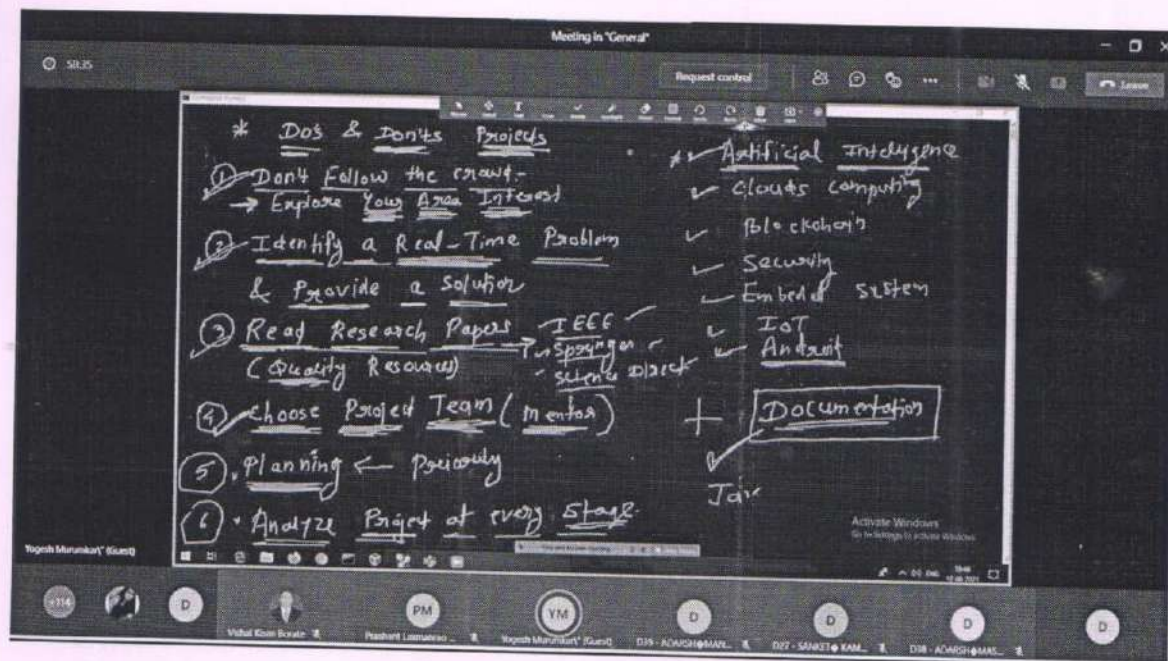 Meeting in "General"
58:35
Request control
Leave
* Do's & Don'ts Projects
① Don't Follow the crowd.
→ Explore Your Area Interest
② Identify a Real-Time Problem
& Provide a Solution
③ Read Research Papers → IEEE
(Quality Resources)
Springer
Science Direct
④ Choose Project Team (mentor)
⑤ Planning ←
⑥ Analyze Project at every Stage
Artificial
Clouds computing
Blockchain
Security
Embeded System
IoT
+ Documentation
Activate Windows
Go to Settings to activate Windows
ENG
Yogesh Murumkar\" (Guest)
+114
D
PM
YM
D
D
D
D
Vishal Kisan Borate
Prashant Laxmanrao ...
Yogesh Murumkar\" (Guest)
D35 - ADARSH�MAN...
D27 - SANKET� KAM...
D38 - ADARSH�MAS...